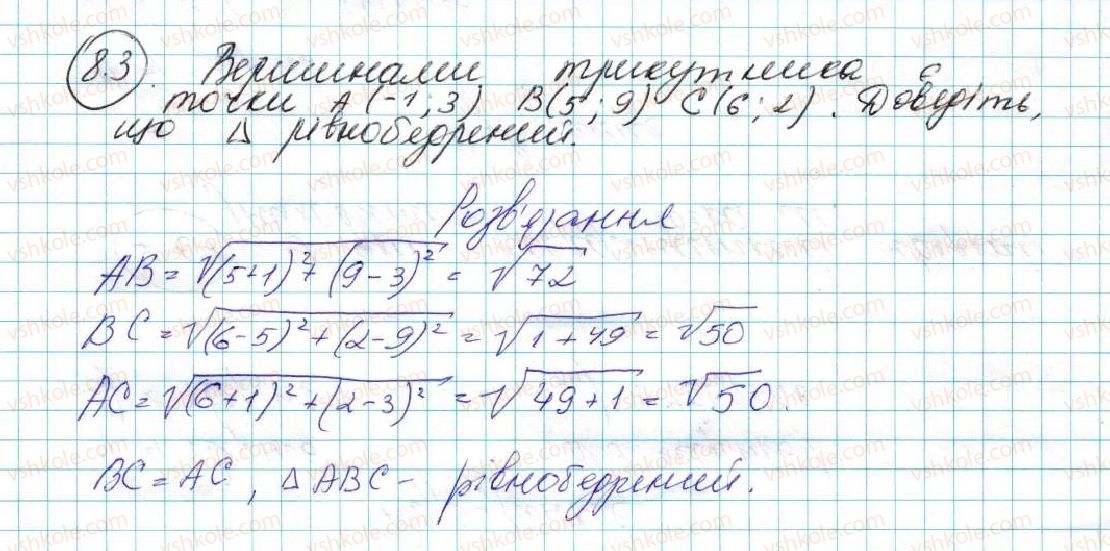 8.3. Вершинами трикутника є
точки A(-1;3) B(5;9) C(6;2). Доведіть,
що △ рівнобедрений.
Розв'язання
AB = √((5+1)² + (9-3)²) = √72
BC = √((6-5)² + (2-9)²) = √(1+49) = √50
AC = √((6+1)² + (2-3)²) = √(49+1) = √50.
BC = AC, △ABC - рівнобедрений.